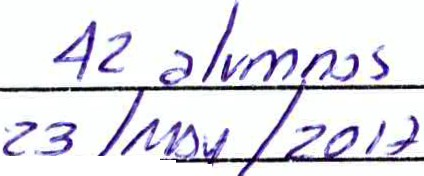 42 alumnos
23/May/2017